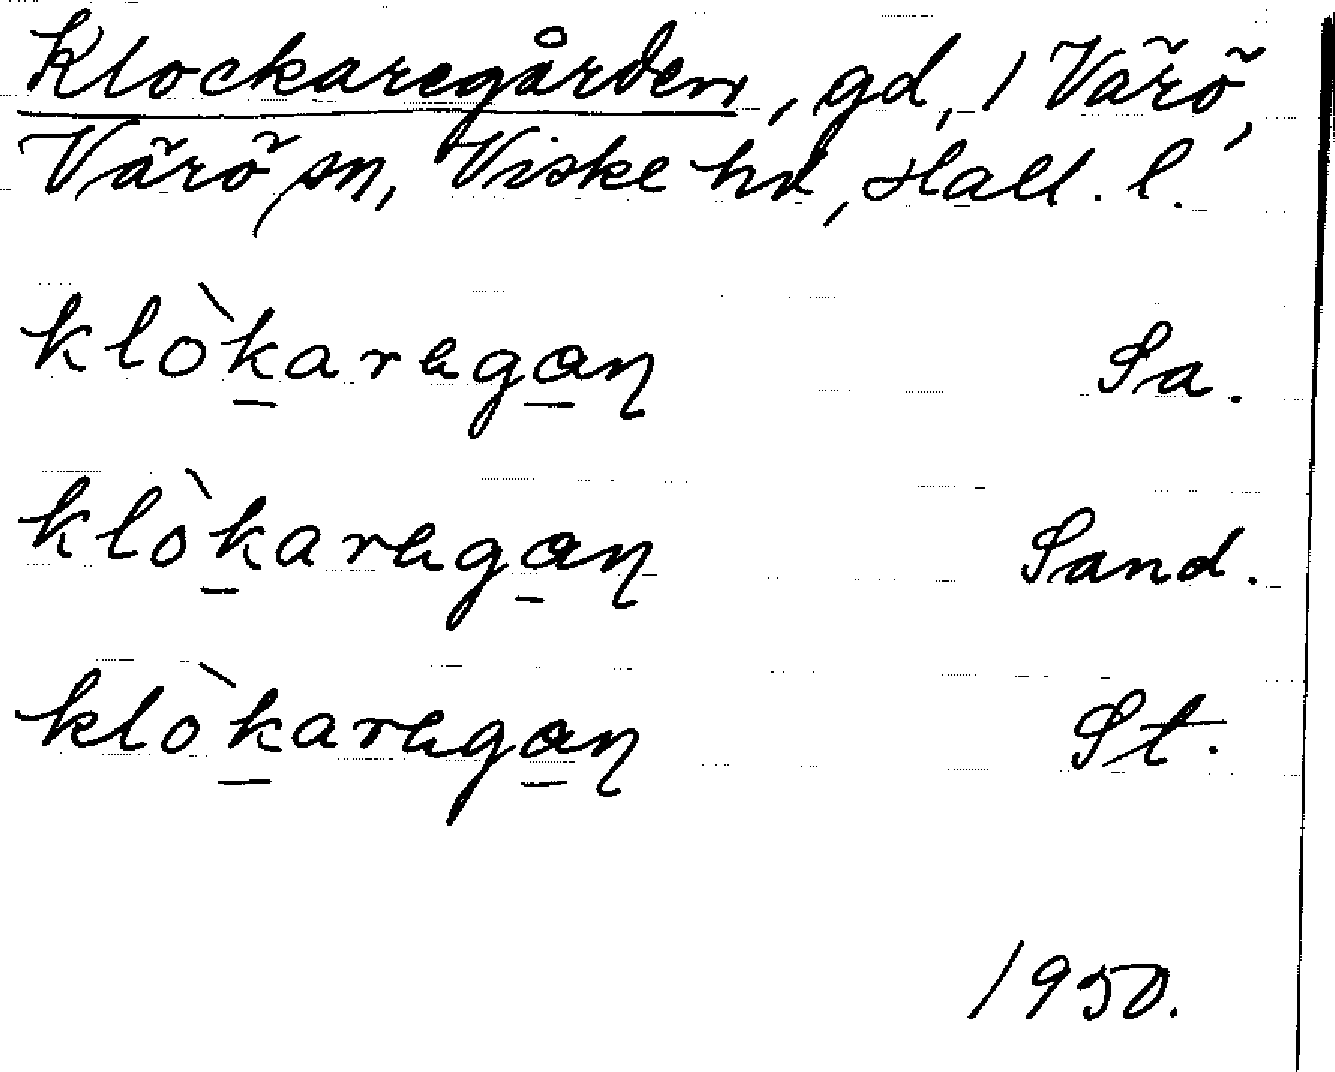 Klockaregården, gd, 1 Värö,
Värö sn, Viske hd, Hall. l.
klòkaregan Sa.
klòkaregan Sand.
klòkaregan St.
1950.